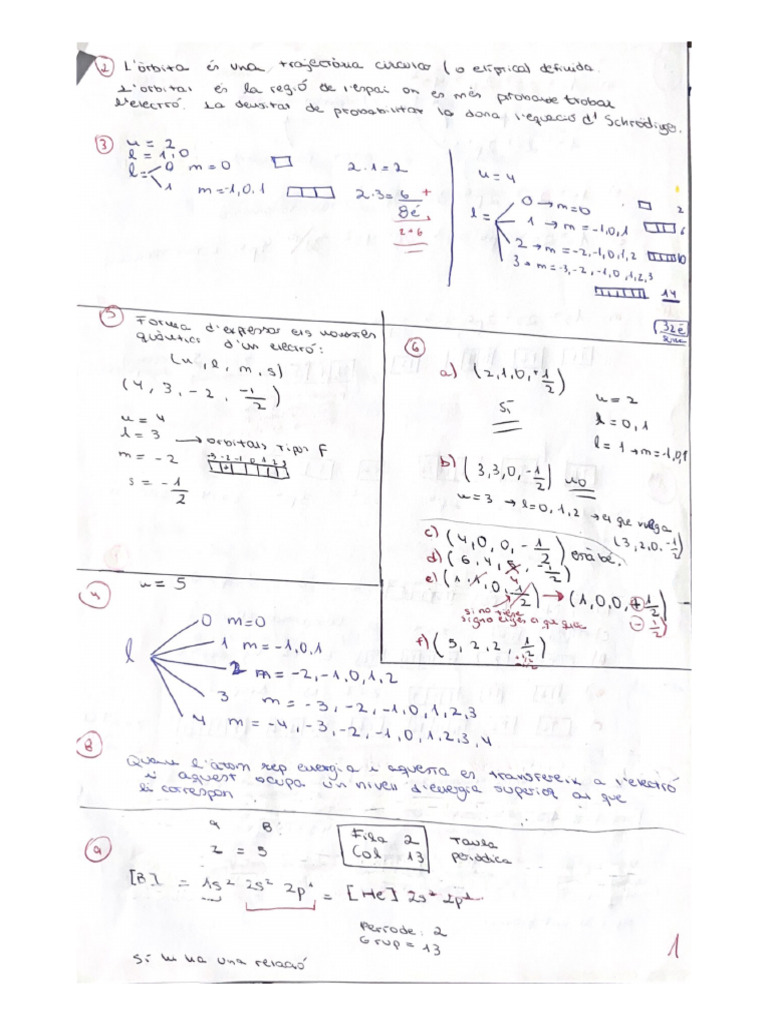 2 L'òrbita és una trajectòria circular (o elíptica) definida.
L'orbital és la regió de l'espai on és més probable trobar
l'electró. La densitat de probabilitat la dona l'equació d'Schrödinger.
3 n = 2
l = 1,0
l = 0 m = 0 2·1=2
1 m=-1,0,1 2·3=6 +
8é
2+6
n = 4
l = 0 → m=0 2
1 → m = -1,0,1 6
2 → m = -2,-1,0,1,2 10
3 → m = -3,-2,-1,0,1,2,3
14
32é
5 Forma d'expressar els nombres
quàntics d'un electró:
(n, l, m, s)
(4, 3, -2, -1/2)
n = 4
l = 3 → orbitals tipus F
m = -2 -3 -2 -1 0 1 2 3
s = -1/2
6
a) (2,1,0,+1/2) n = 2
Sí l = 0,1
l = 1 → m = -1,0,1
b) (3,3,0,-1/2) no
n = 3 → l = 0,1,2 → el que vulga
(3,2,0,-1/2)
c) (4,0,0,-1/2) està bé.
d) (6,4,5,-1/2)
4
e) (1,1,0,1/2) → (1,0,0,+1/2)
- 1/2
si no tiene
signo eliges el que quieras
f) (5,2,2,1/2)
4 n = 5
l 0 m=0
1 m = -1,0,1
2 m = -2,-1,0,1,2
3 m = -3,-2,-1,0,1,2,3
4 m = -4,-3,-2,-1,0,1,2,3,4
8
Quan l'àtom rep energia i aquesta es transfereix a l'electró
i aquest ocupa un nivell d'energia superior al que
li correspon
9
B
2 = 5
Fila 2
Col 13
Taula
periòdica
[B] = 1s² 2s² 2p¹ = [He] 2s² 2p¹
Període: 2
Grup = 13
Sí hi ha una relació
1